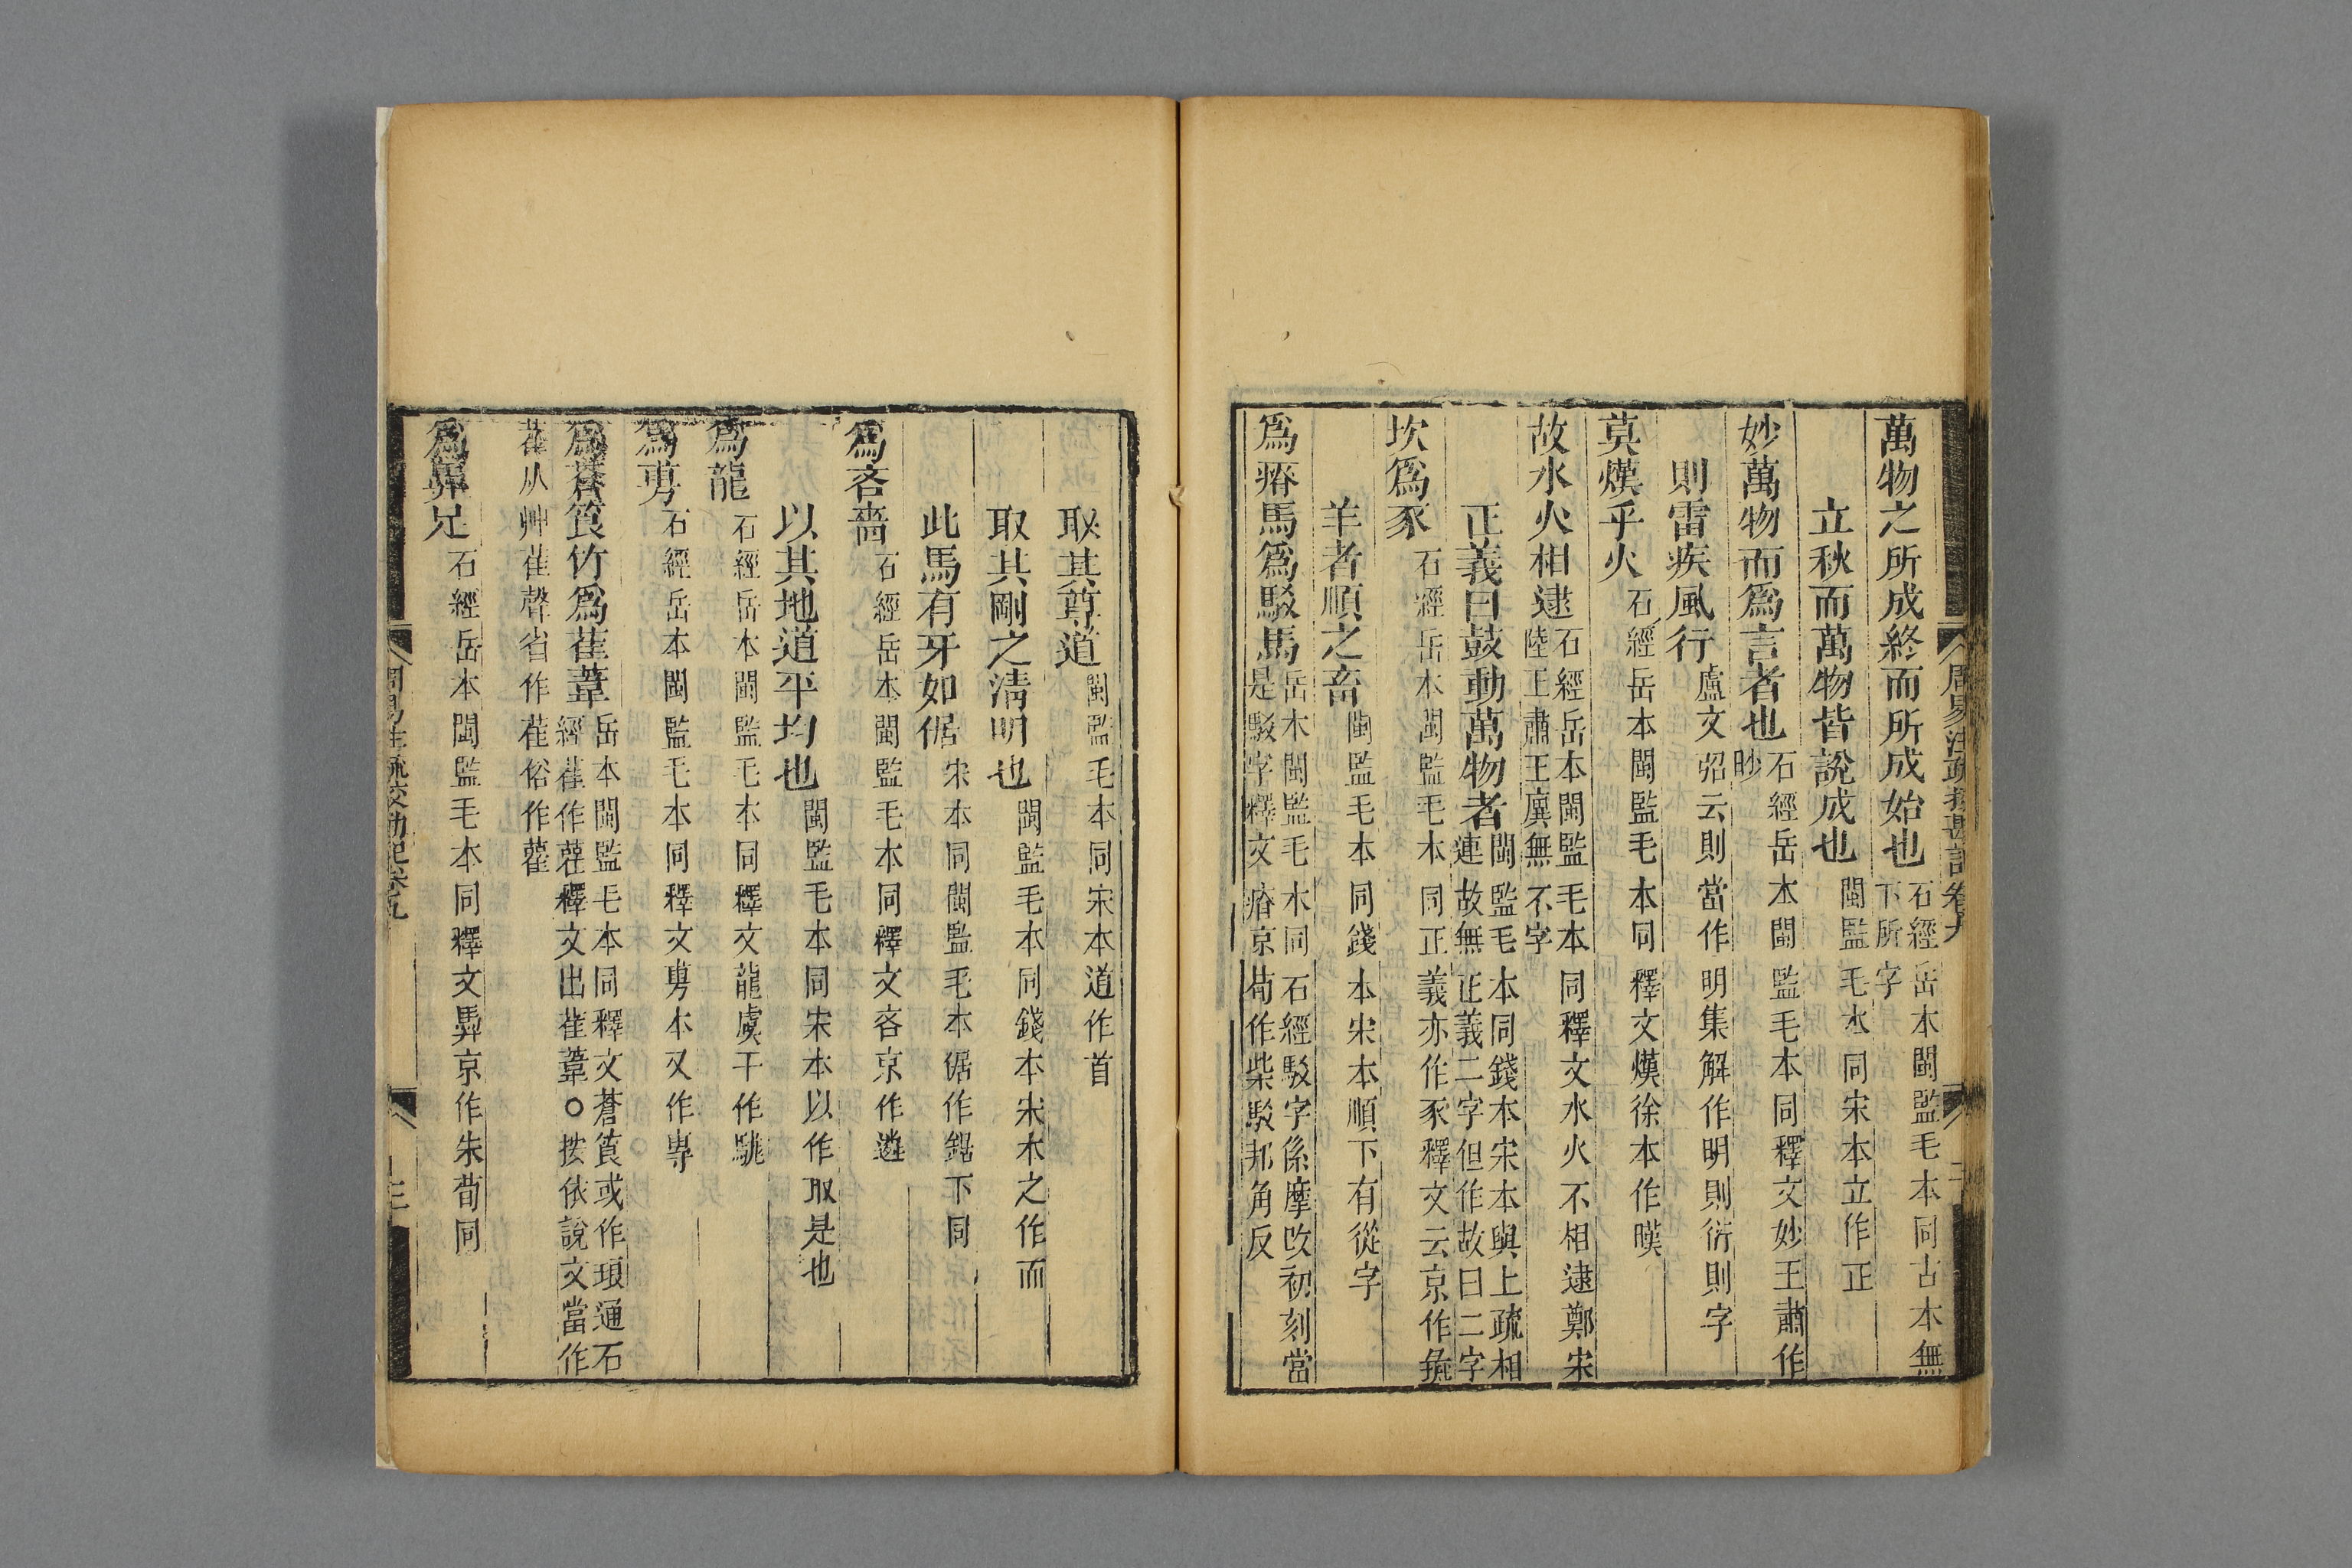 萬物之所成終而所成始也 石經岳本閩監毛本同古本無下所字
立秋而萬物皆說成也 閩監毛本同宋本立作正
妙萬物而爲言者也 石經岳本閩監毛本同釋文妙王肅作眇
則雷疾風行 盧文弨云則當作明集解作明則衍則字
莫熯乎火 石經岳本閩監毛本同釋文熯徐本作暵
故水火相逮 石經岳本閩監毛本同釋文水火不相逮鄭宋陸王肅王廙無不字
正義曰鼓動萬物者 閩監毛本同錢本宋本與上疏相連故無正義二字但作故曰二字
坎爲豕 石經岳本閩監毛本同正義亦作豕釋文云京作彘
羊者順之畜 閩監毛本同錢本宋本順下有從字
爲瘠馬爲駁馬 岳本閩監毛本同石經駁字係摩改初刻當是駮字釋文瘠京荀作柴駁邦角反
取其尊道 閩監毛本同宋本道作首
取其剛之淸明也 閩監毛本同錢本宋本之作而
此馬有牙如倨 宋本同閩監毛本倨作鋸下同
爲吝嗇 石經岳本閩監毛本同釋文吝京作遴
以其地道平均也 閩監毛本同宋本以作取是也
爲龍 石經岳本閩監毛本同釋文龍虞干作駹
爲旉 石經岳本閩監毛本同釋文旉本又作專
爲蒼筤竹爲萑葦 岳本閩監毛本同釋文蒼筤或作琅通石經萑作䧹釋文出萑葦○按依說文當作
萑从艸萑聲省作萑俗作雚
爲馵足 石經岳本閩監毛本同釋文馵京作朱荀同
周易注疏校勘記卷九
三